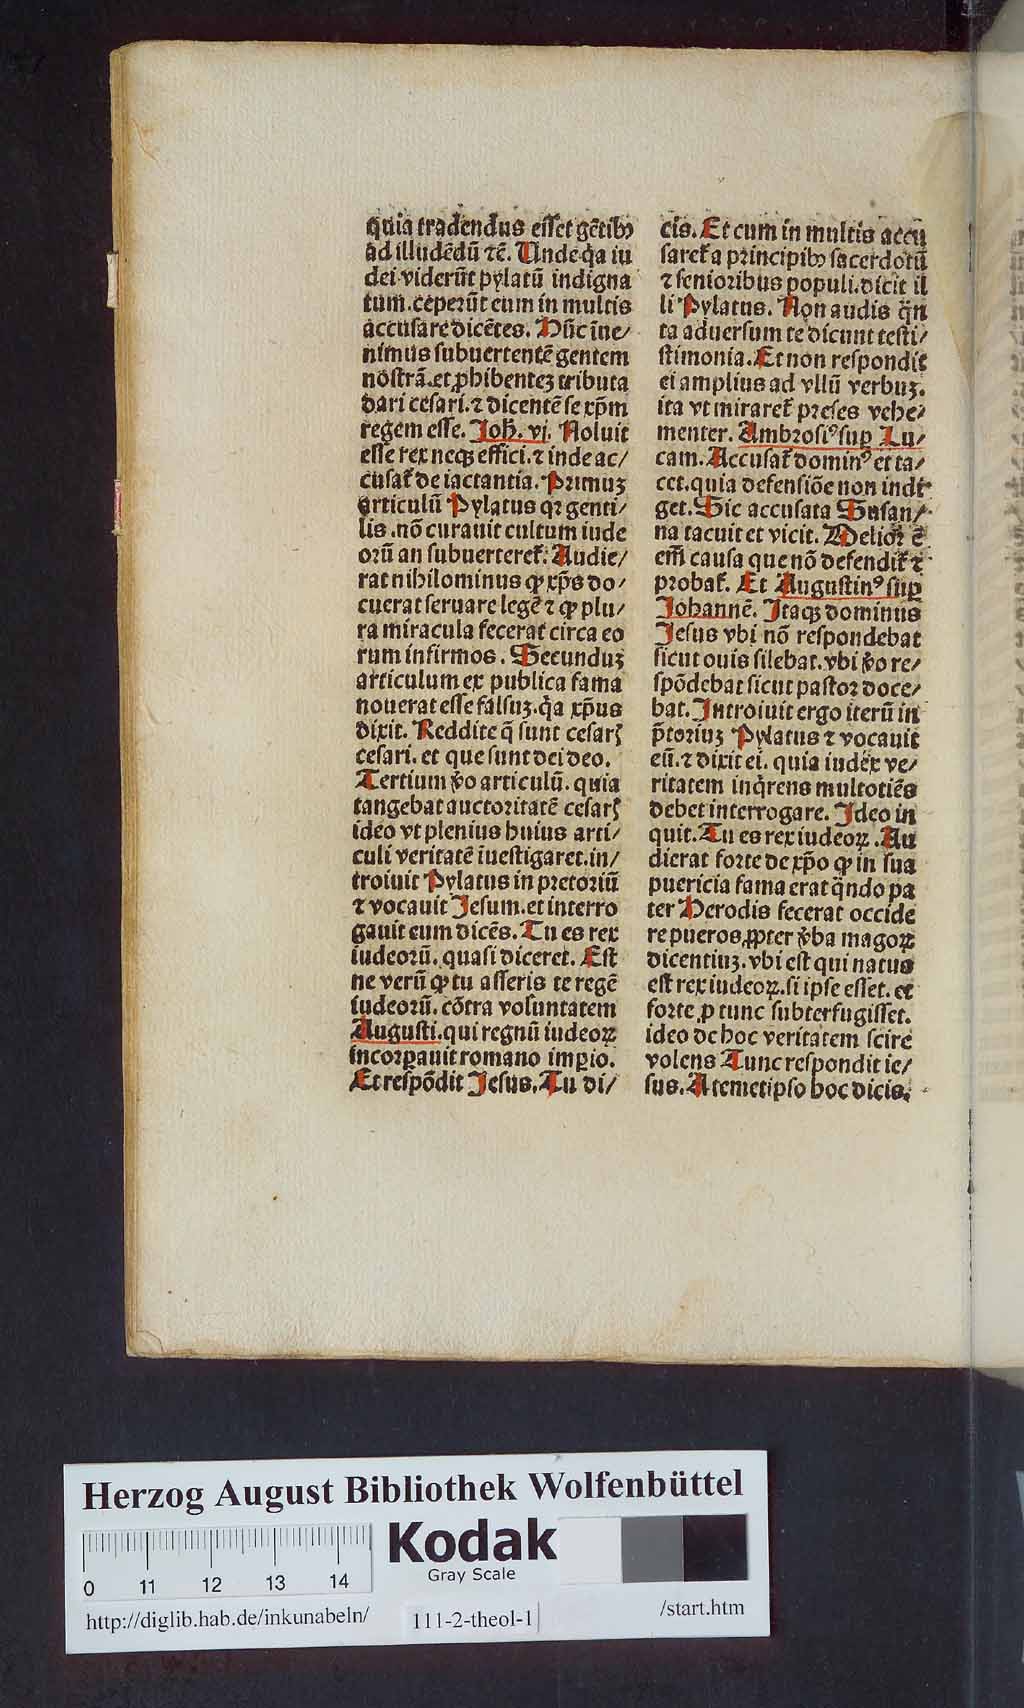 quia tradendus esset gētibꝫ
ad illudēdū ⁊ē. Unde q̄a iu
dei viderūt pylatū indigna
tum. ceperūt eum in multis
accusare dicētes. Hūc īue/
nimus subuertentē gentem
nostrā. et ꝓhibentez tributa
dari cesari. ⁊ dicentē se xp̄m
regem esse. Joh̄. vj. Noluit
esse rex neqꝫ effici. ⁊ inde ac/
cusat᷑ de iactantia. Primuz
articulū Pylatus qꝛ genti/
lis. nō curauit cultum iude
orū an subuerteret᷑. Audie/
rat nihilominus ꝙ xp̄s do/
cuerat seruare legē ⁊ ꝙ plu/
ra miracula fecerat circa eo
rum infirmos. Secunduz
articulum ex publica fama
nouerat esse falsuz. q̄a xp̄us
dixit. Reddite q̄ sunt cesarꝭ
cesari. et que sunt dei deo.
Tertium v̄o articulū. quia
tangebat auctoritatē cesarꝭ
ideo vt plenius huius arti/
culi veritatē īuestigaret. in/
troiuit Pylatus in pretoriū
⁊ vocauit Jesum. et interro
gauit eum dicēs. Tu es rex
iudeorū. quasi diceret. Est
ne verū ꝙ tu asseris te regē
iudeorū. cōtra voluntatem
Augusti. qui regnū iudeoꝝ
incorꝑauit romano imꝑio.
Et respōdit Jesus. Tu di/
cis. Et cum in multis accu
saret᷑ a principibꝫ sacerdotū
⁊ senioribus populi. dicit il
li Pylatus. Non audis q̄n
ta aduersum te dicunt testi/
stimonia. Et non respondit
ei amplius ad vllū verbuz.
ita vt miraret᷑ preses vehe/
menter. Ambrosiꝰ suꝑ Lu/
cam. Accusat᷑ dominꝰ et ta/
cet. quia defensiōe non indi
get. Sic accusata Susan/
na tacuit et vicit. Melior ē
em̄ causa que nō defendit᷑ ⁊
probat᷑. Et Augustinꝰ suꝑ
Johannē. Itaqꝫ dominus
Jesus vbi nō respondebat
sicut ouis silebat. vbi v̄o re/
spōdebat sicut pastor doce/
bat. Introiuit ergo iterū in
p̄toriuz Pylatus ⁊ vocauit
eū. ⁊ dixit ei. quia iudex ve/
ritatem inq̄rens multotiēs
debet interrogare. Ideo in
quit. Tu es rex iudeoꝝ. Au
dierat forte de xp̄o ꝙ in sua
puericia fama erat q̄ndo pa
ter Herodis fecerat occide
re pueros ꝓpter v̄ba magoꝝ
dicentiuz. vbi est qui natus
est rex iudeoꝝ. si ipse esset. et
forte ꝓ tunc subterfugisset.
ideo de hoc veritatem scire
volens Tunc respondit ie/
sus. A temetipso hoc dicis.
Herzog August Bibliothek Wolfenbüttel
Kodak
Gray Scale
0 11 12 13 14
http://diglib.hab.de/inkunabeln/
111-2-theol-1
/start.htm